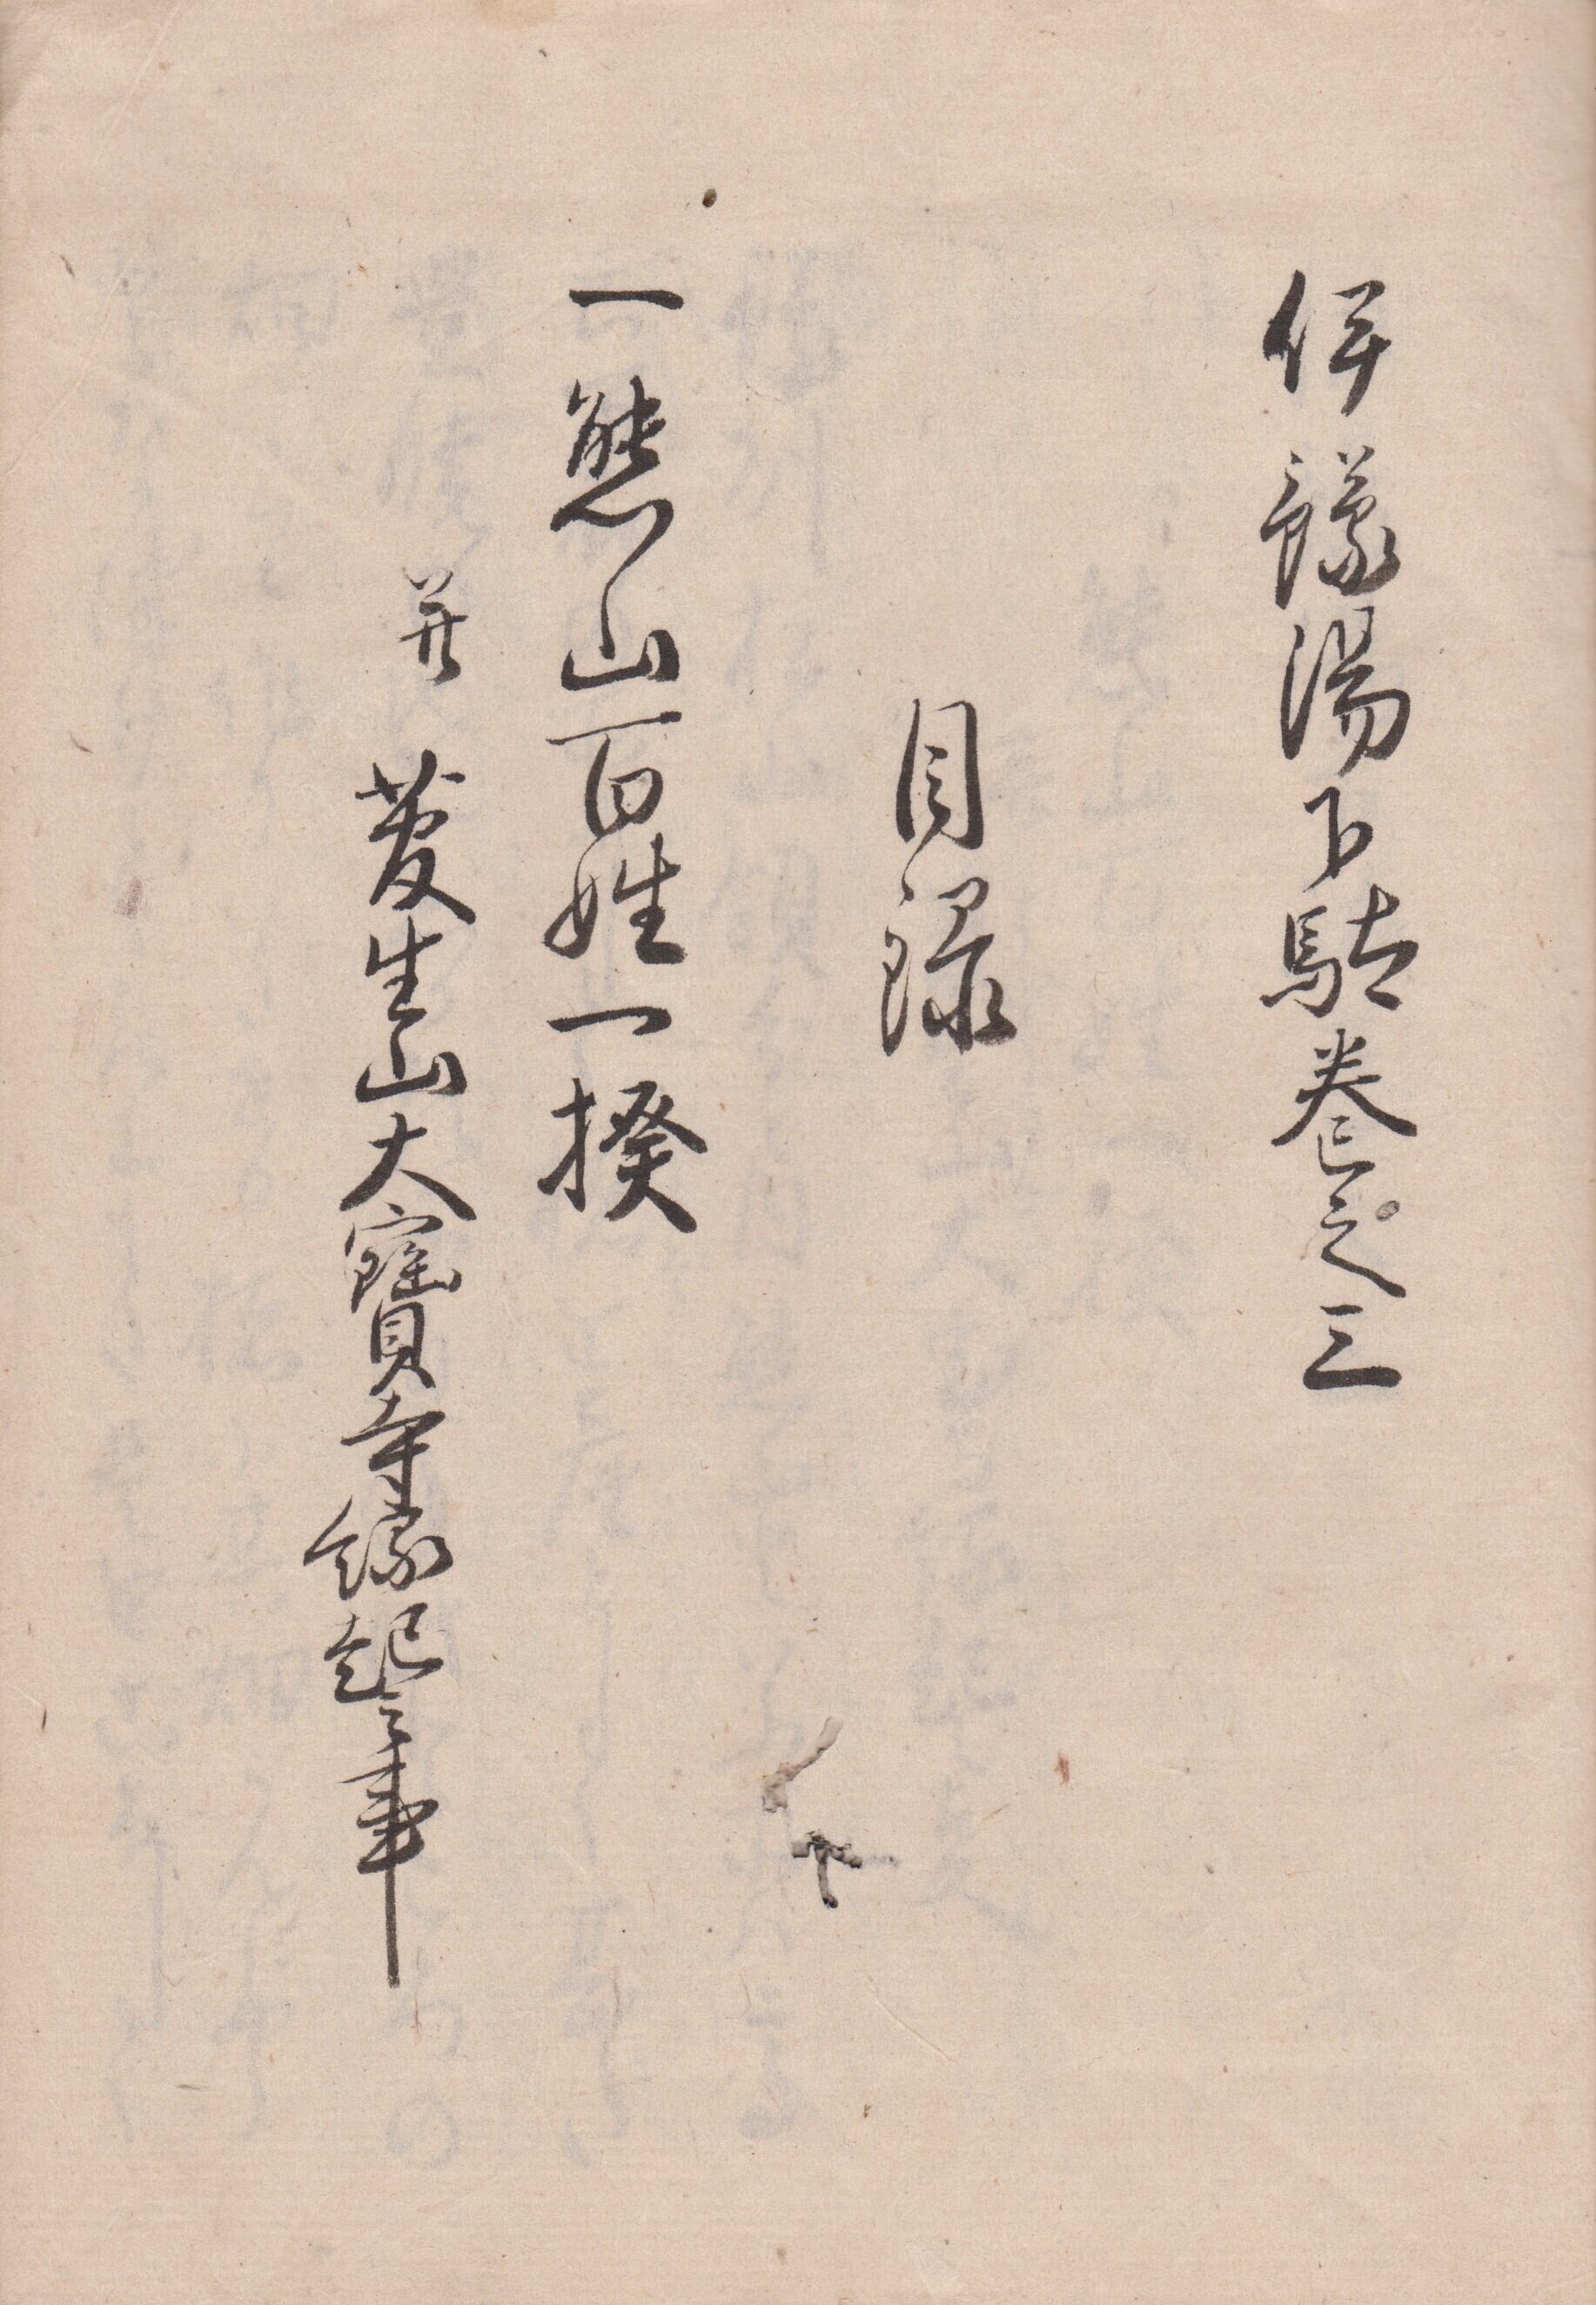 伊豫湯下駄巻之三
目録
一熊山百姓一揆
并 菅生山大寳寺縁起之事